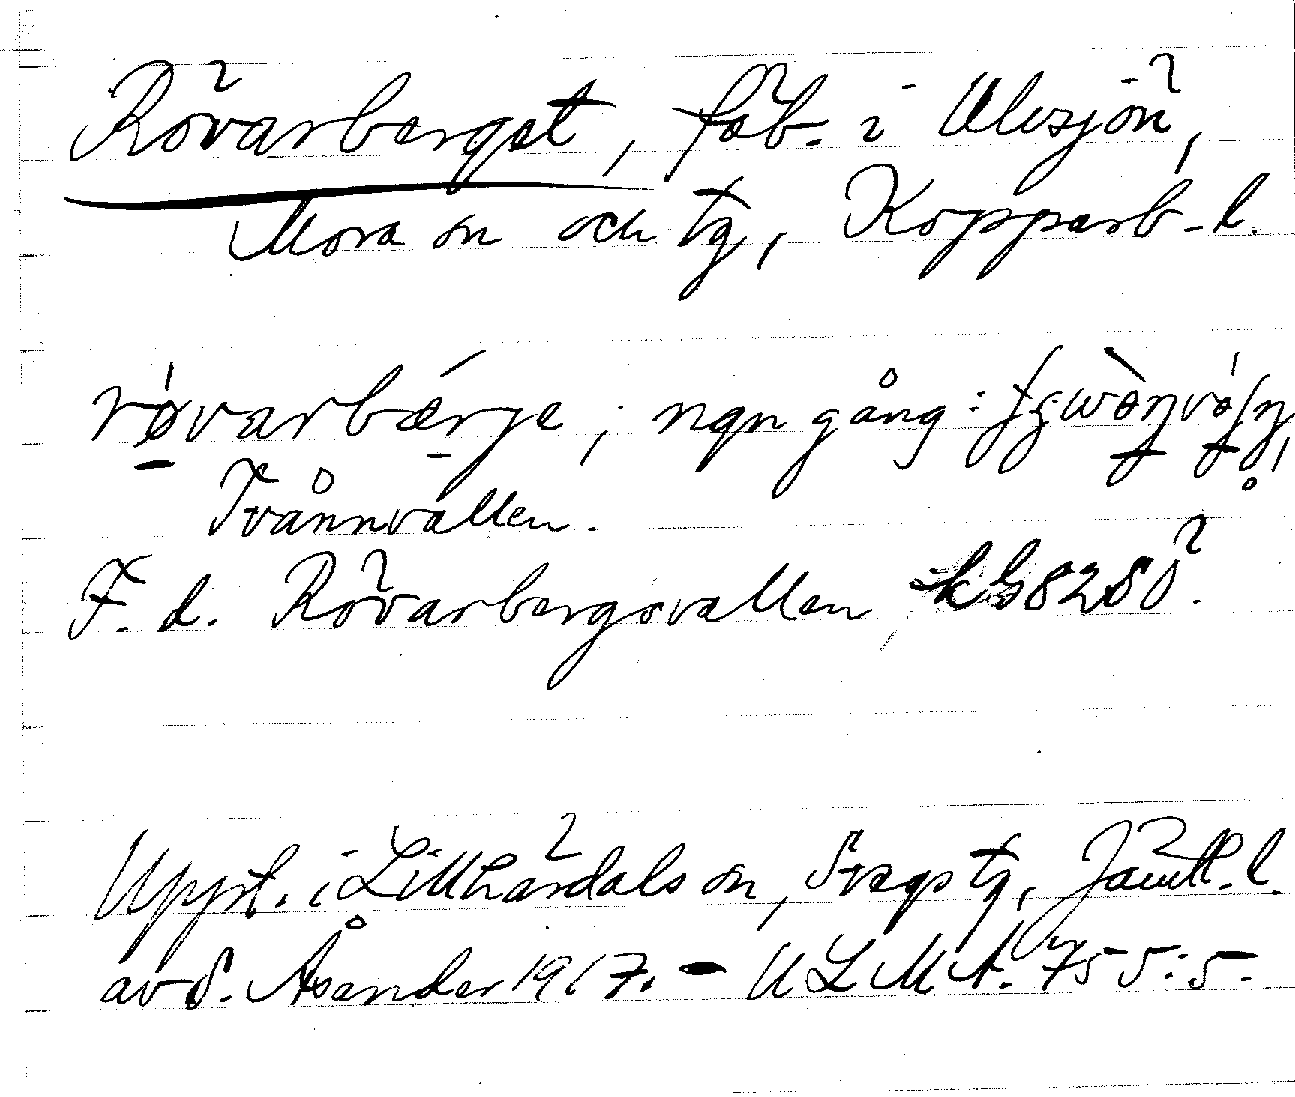 Rövarberget, fäb. i Ulvsjön,
Mora sn och tg, Kopparb. l.
røvarbærje; ngn gång:
Tvånnvallen.
F. d. Rövarbergsvallen,
Uppt. i Lillhärdals sn, Svegs tg, Jämtl. l.
av S. Åsander 1917. - ULMA. 755:5.